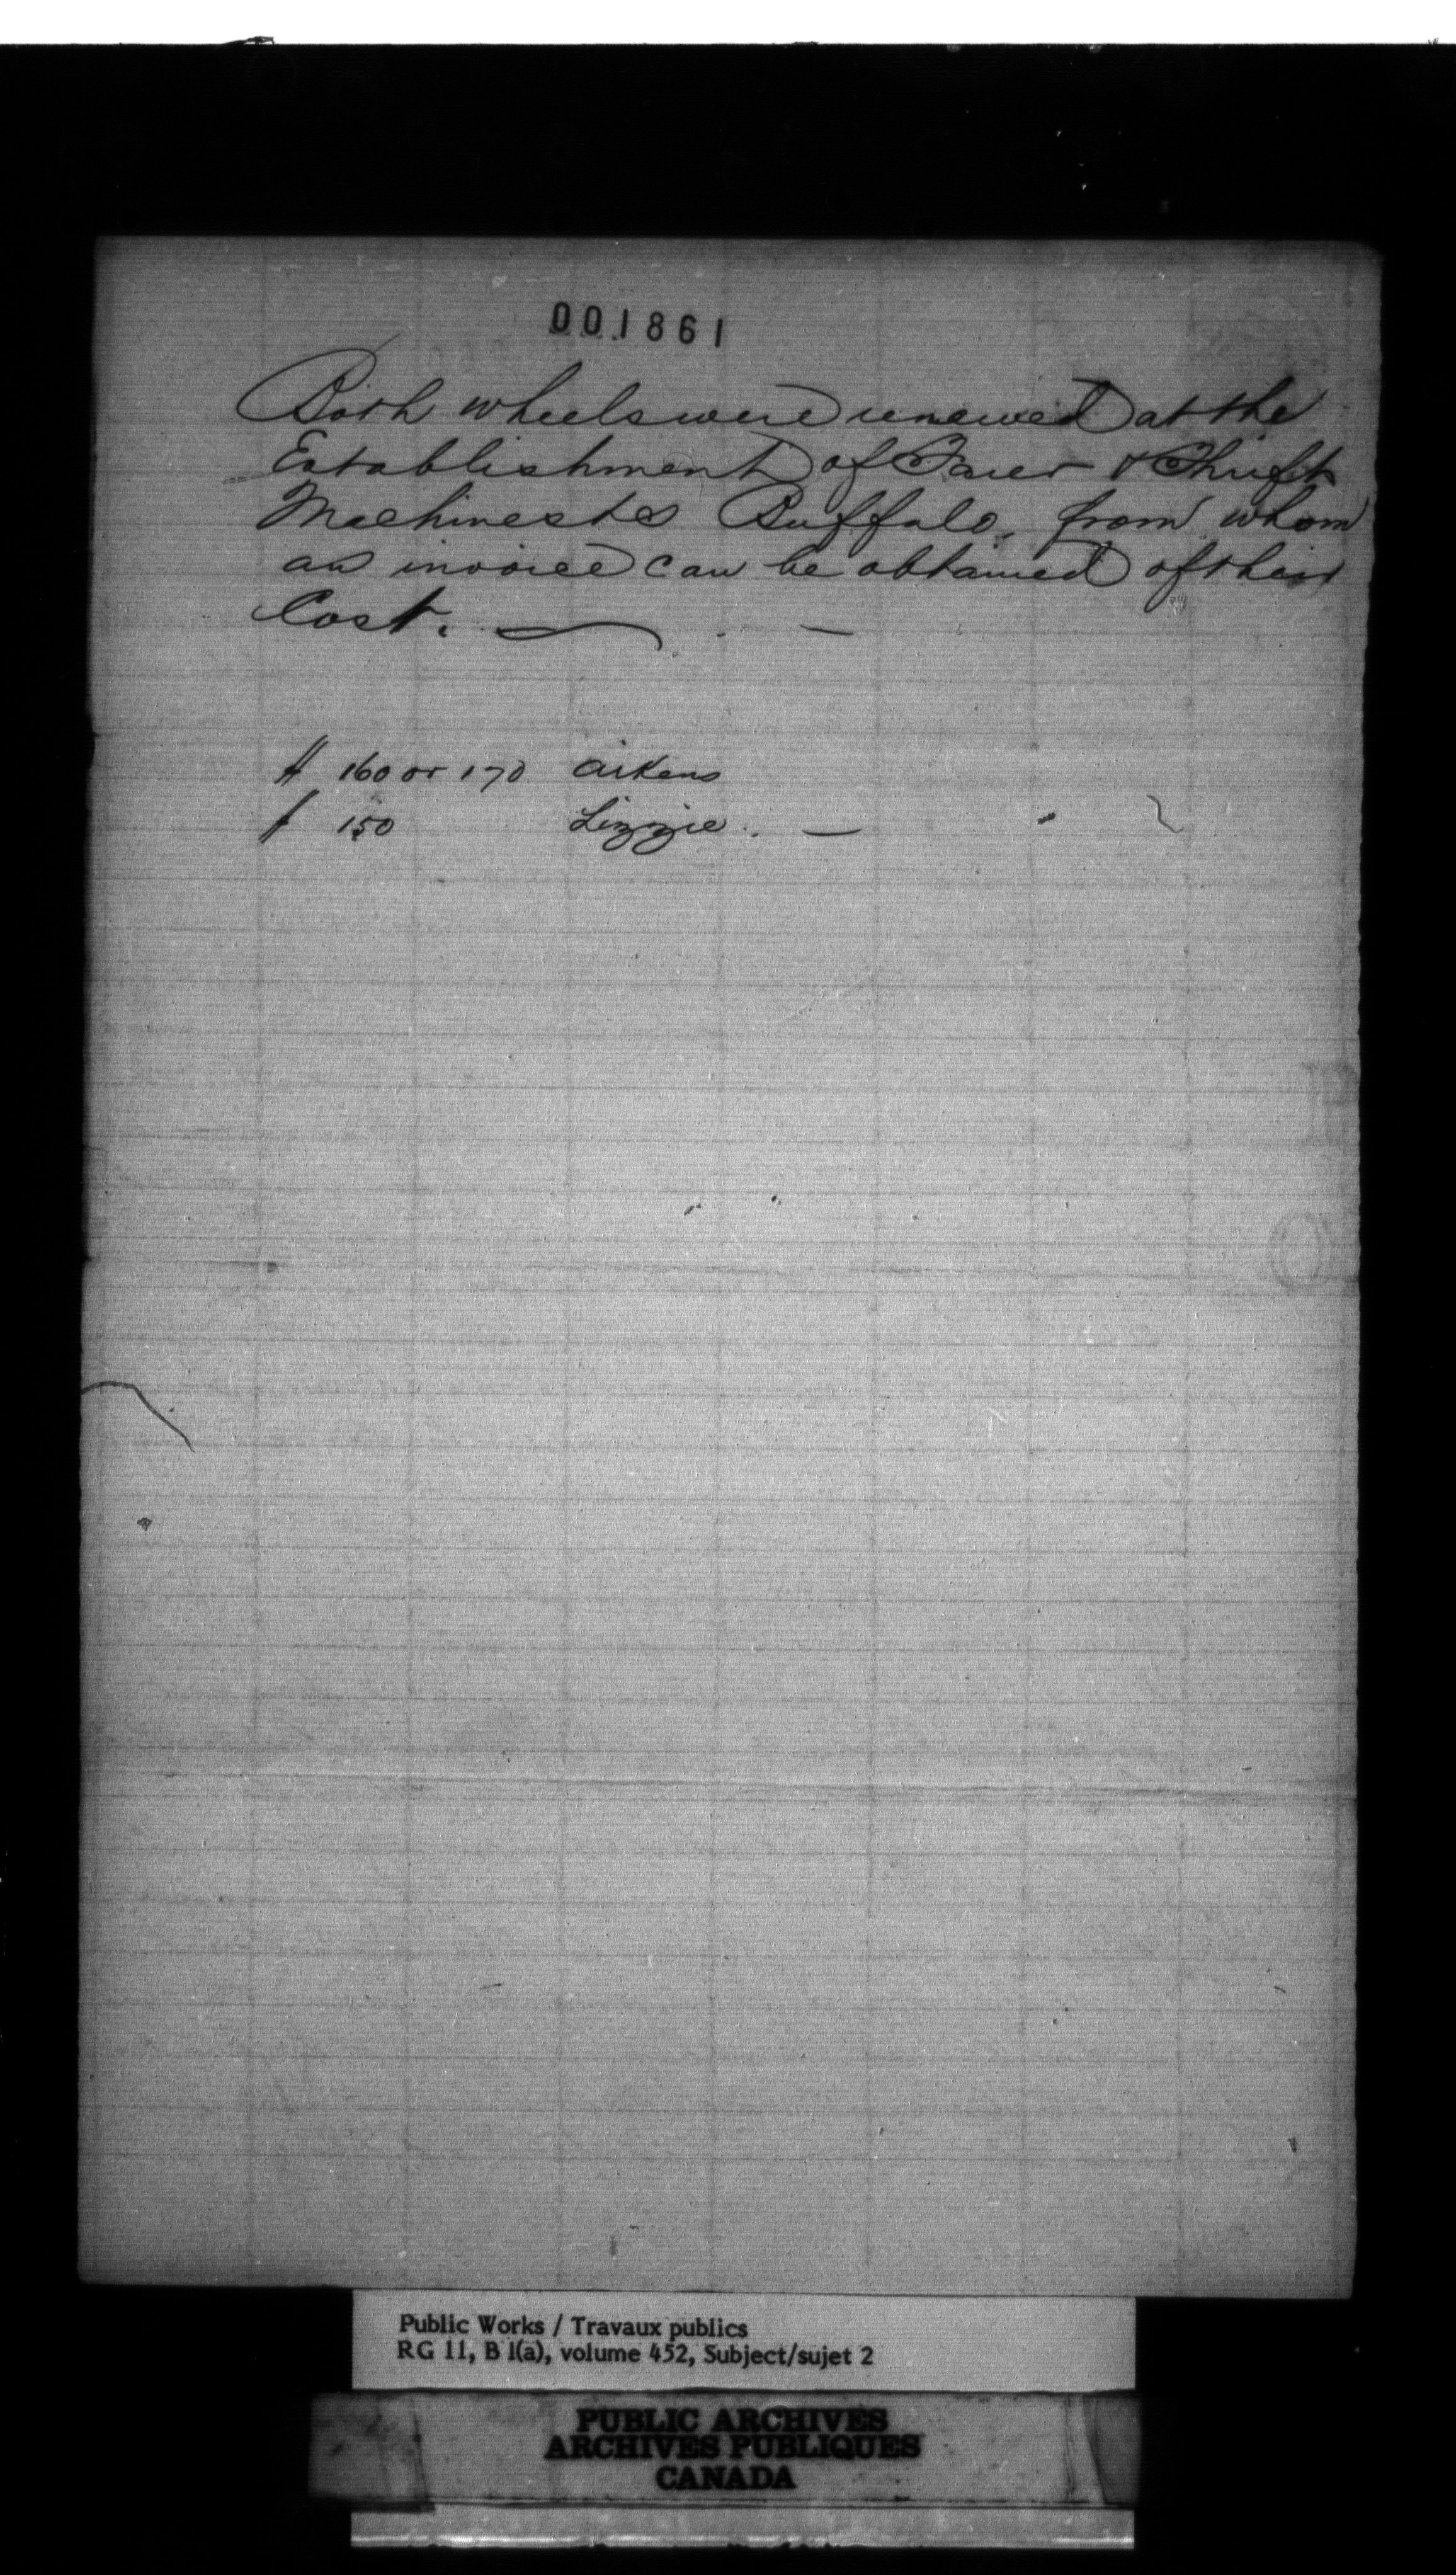 001861
Both wheels were renewed at the
Establishment of & Thrift
Machinests Buffalo, from whom
an invoice can be obtained of their
Cost.
$ 160 or 170 Aikens
$ 150 Lizzie. —
Public Works / Travaux publics
RG 11, B 1(a), volume 452, Subject/sujet 2
PUBLIC ARCHIVES
ARCHIVES PUBLIQUES
CANADA